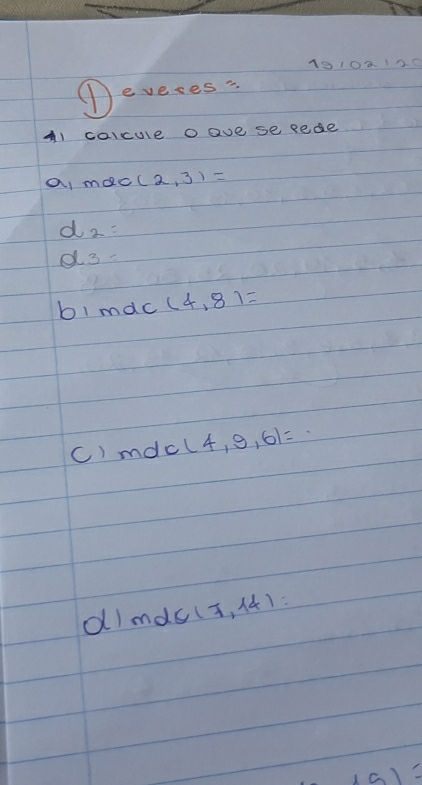 19/02/20
Deveres =
1) calcule o que se pede
a) mdc(2,3) =
d2=
d3=
b) mdc (4,8)=
c) mdc(4,9,6)=
d) mdc(7,14):